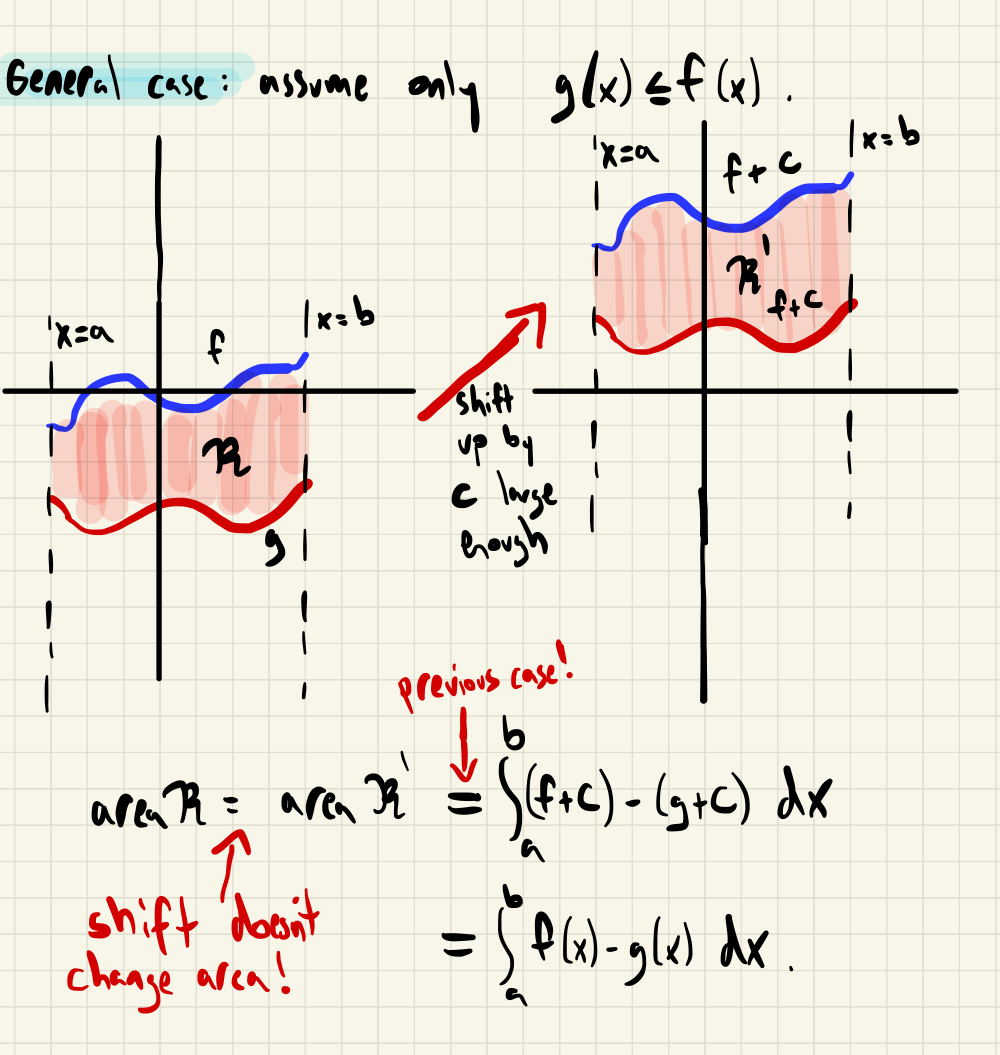 General case: assume only g(x) ≤ f(x).
x=a
f
x=b
R
g
shift
up by
c large
enough
x=a
f+c
x=b
R'
f+c
previous case!
area R = area R' = ∫_a^b (f+c) - (g+c) dx
shift doesn't
change area!
= ∫_a^b f(x) - g(x) dx.